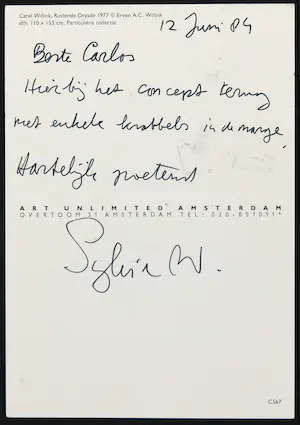 Carel Willink, Rustende Dryade 1977 © Erven A.C. Willink
afm: 110 x 155 cm, Particuliere collectie
12 Juni 84
Beste Carlos
Hierbij het concept terug
met enkele krabbels in de marge,
Hartelijk groetend
ART UNLIMITED AMSTERDAM
OVERTOOM 31 AMSTERDAM TEL: 020-851011*
Sylvia W.
C567